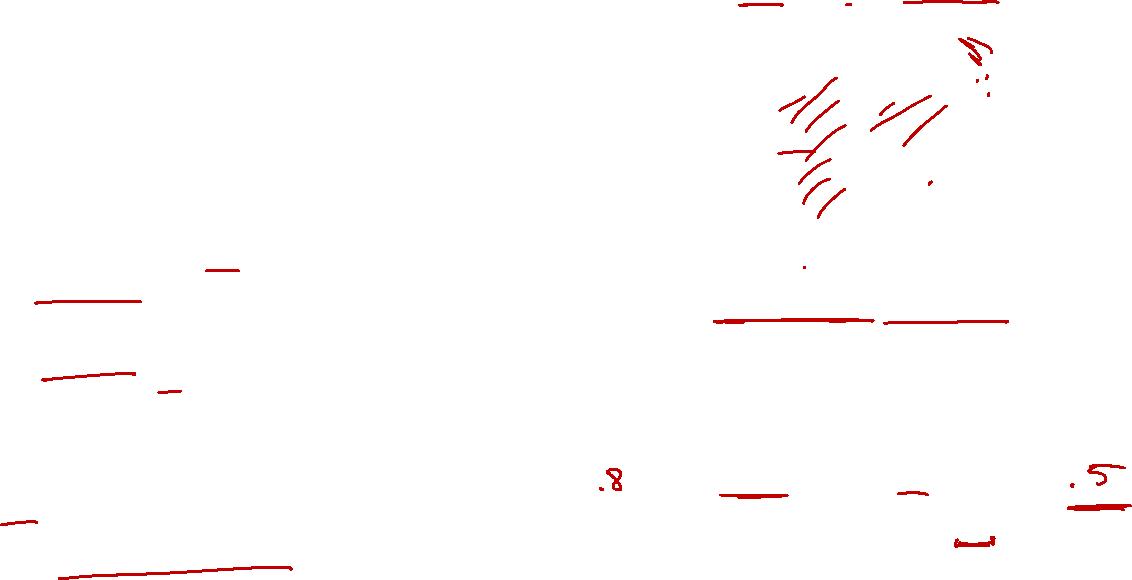 .8 .5